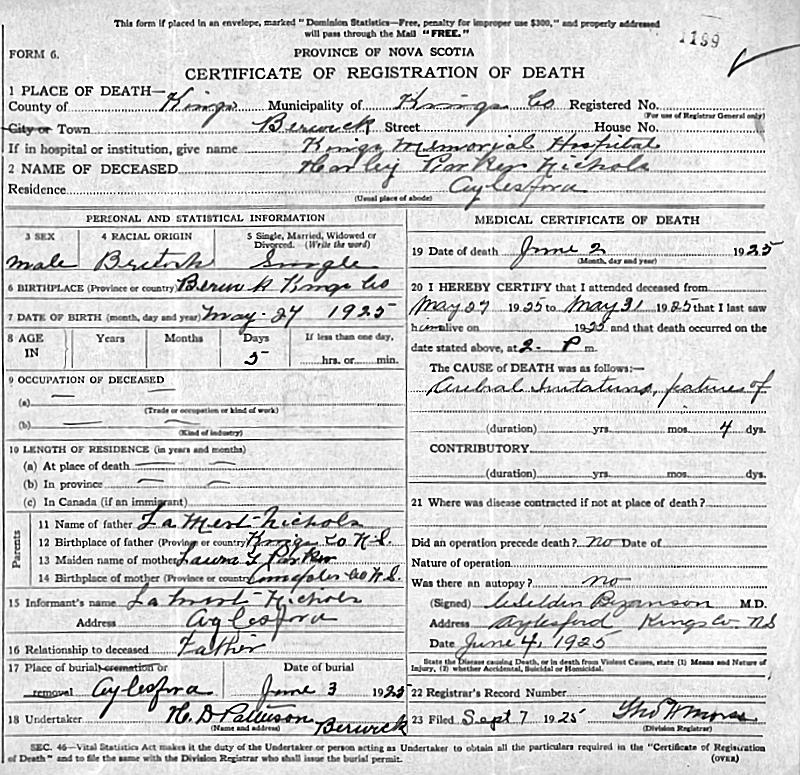 This form if placed in an envelope, marked "Dominion Statistics—Free, penalty for improper use $300," and properly addressed
will pass through the Mail "FREE."
1199
FORM 6.
PROVINCE OF NOVA SCOTIA
CERTIFICATE OF REGISTRATION OF DEATH
1 PLACE OF DEATH—
County of Kings Municipality of Kings Co Registered No.
(For use of Registrar General only)
City or Town Berwick Street House No.
If in hospital or institution, give name Kings Memorial Hospital
2 NAME OF DECEASED Harley Parker Nichols
Residence Aylesford
(Usual place of abode)
PERSONAL AND STATISTICAL INFORMATION
3 SEX 4 RACIAL ORIGIN 5 Single, Married, Widowed or
Divorced. (Write the word)
male British Single
6 BIRTHPLACE (Province or country) Berwick Kings Co
7 DATE OF BIRTH (month, day and year) May-27 1925
8 AGE Years Months Days If less than one day,
IN 5 hrs. or min.
9 OCCUPATION OF DECEASED
(a)
(Trade or occupation or kind of work)
(b)
(Kind of industry)
10 LENGTH OF RESIDENCE (in years and months)
(a) At place of death
(b) In province
(c) In Canada (if an immigrant)
Parents
11 Name of father LaMert Nichols
12 Birthplace of father (Province or country) Kings Co N.S.
13 Maiden name of mother Laura Parker
14 Birthplace of mother (Province or country) Co N.S.
15 Informant's name LaMert Nichols
Address Aylesford
16 Relationship to deceased Father
17 Place of burial cremation or Date of burial
removal Aylesford June 3 1925
18 Undertaker H. D Pattison Berwick
(Name and address)
MEDICAL CERTIFICATE OF DEATH
19 Date of death June 2 1925
(Month, day and year)
20 I HEREBY CERTIFY that I attended deceased from
May 27 1925 to May 31 1925 that I last saw
him alive on 1925 and that death occurred on the
date stated above, at 2- P m.
The CAUSE of DEATH was as follows:—
Cerebral Irritations, of
(duration) yrs. mos. 4 dys.
CONTRIBUTORY
(duration) yrs. mos. dys.
21 Where was disease contracted if not at place of death?
Did an operation precede death? no Date of
Nature of operation
Was there an autopsy? no
(Signed) Bezanson M.D.
Address Aylesford Kings Co. N.S
Date June 4, 1925
State the Disease causing Death, or in death from Violent Causes, state (1) Means and Nature of
Injury, (2) whether Accidental, Suicidal or Homicidal.
22 Registrar's Record Number
23 Filed Sept 7 1925 Thos H Morse
(Division Registrar)
SEC. 46—Vital Statistics Act makes it the duty of the Undertaker or person acting as Undertaker to obtain all the particulars required in the "Certificate of Registration
of Death" and to file the same with the Division Registrar who shall issue the burial permit. (OVER)